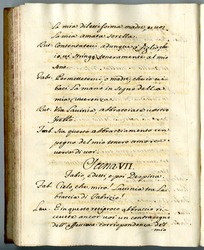 la mia dilettissima madre, e voi
la mia amata sorella.
Contentatevi adunque, o figlio, ch'
io vi stringa teneramente al mio
seno.
Fab. Permettetemi, o madre, che io vi
baci la mano in segno della
mia riverenza.
Via Lavinia, abbracciate vostro
fratello.
Fab. Sia questo abbracciamento un
pegno del mio tenero amore
verso di voi.
Scena VII.
Fulvio, e detti, e poi Despina.
Ful. Cielo, che miro! Lavinia tra le
braccia di Fabrizio!
Lav. Da questo reciproco abbraccio ri-
cevete ancor voi un contrassegno
dell'affettuosa corrispondenza del
mio